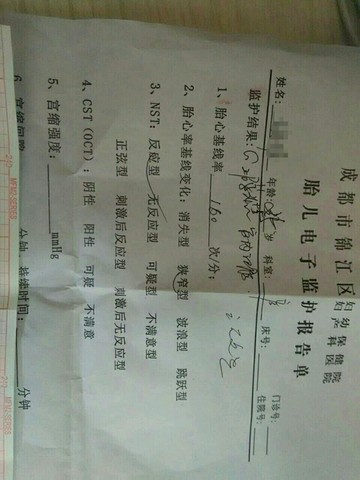 成都市锦江区妇幼保健院
妇产科医院
胎儿电子监护报告单
姓名： 年龄： 岁 科室： 床号： 门诊号：
住院号：
监护结果：
1、胎心基线率 160 次/分；
2、胎心率基线变化：消失型 狭窄型 波浪型 跳跃型
3、NST：反应型 无反应型 可疑型 不满意型
正弦型 刺激后反应型 刺激后无反应型
4、CST（OCT）：阴性 阳性 可疑 不满意
5、宫缩强度： mmHg
6、宫缩间隔 分钟 持续时间： 分钟